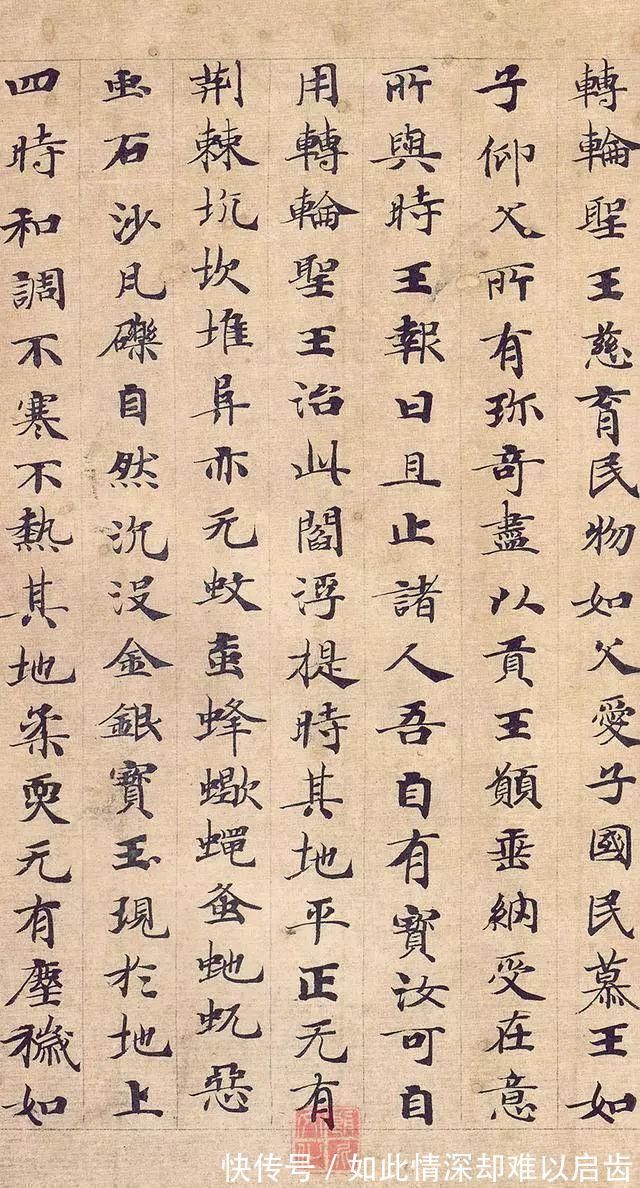 轉輪聖王慈育民物如父愛子國民慕王如
子仰父所有珎奇盡以貢王願垂納受在意
所與時王報曰且止諸人吾自有寶汝可自
用轉輪聖王治此閻浮提時其地平正无有
荆棘坑坎堆阜亦无蚊虻蜂蠍蠅蚤虵蚖惡
虫石沙凡礫自然沉没金銀寶玉現於地上
四時和調不寒不熱其地柔耎无有塵穢如
快传号 / 如此情深却难以启齿